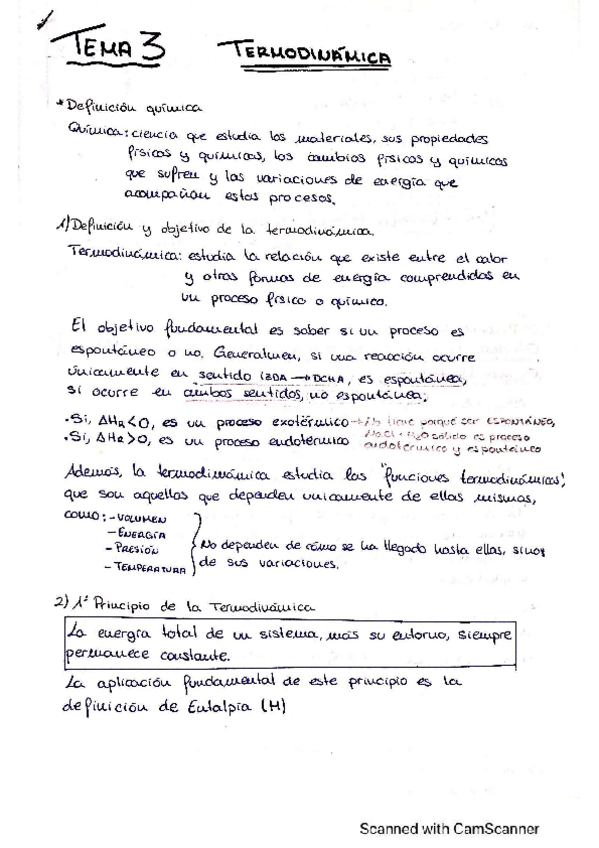 TEMA 3 TERMODINÁMICA
*Definición química
Química: ciencia que estudia los materiales, sus propiedades
físicas y químicas, los cambios físicos y químicos
que sufren y las variaciones de energía que
acompañan estos procesos.
1) Definición y objetivo de la termodinámica.
Termodinámica: estudia la relación que existe entre el calor
y otras formas de energía comprendidos en
un proceso físico o químico.
El objetivo fundamental es saber si un proceso es
espontáneo o no. Generalmen, si una reacción ocurre
únicamente en sentido IZDA → DCHA, es espontánea,
si ocurre en ambos sentidos, no espontánea;
·Si, ΔHR<0, es un proceso exotérmico → No tiene porqué ser ESPONTÁNEO,
·Si, ΔHR>0, es un proceso endotérmico NaCl + H2O sólido es proceso
endotérmico y espontáneo
Además, la termodinámica estudia las "funciones termodinámicas",
que son aquellas que dependen unicamente de ellas mismas,
como: - VOLUMEN
- ENERGÍA
- PRESIÓN No dependen de cómo se ha llegado hasta ellas, sinos
- TEMPERATURA de sus variaciones.
2) 1º Principio de la Termodinámica
La energía total de un sistema, más su entorno, siempre
permanece constante.
La aplicación fundamental de este principio es la
definición de Entalpía (H)
Scanned with CamScanner